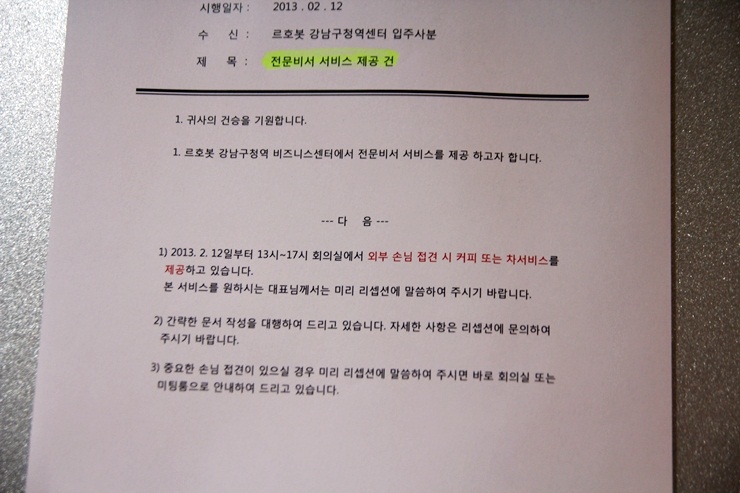 시행일자 : 2013 . 02 . 12
수 신 : 르호봇 강남구청역센터 입주사분
제 목 : 전문비서 서비스 제공 건
1. 귀사의 건승을 기원합니다.
1. 르호봇 강남구청역 비즈니스센터에서 전문비서 서비스를 제공 하고자 합니다.
--- 다 음 ---
1) 2013. 2. 12일부터 13시~17시 회의실에서 외부 손님 접견 시 커피 또는 차서비스를
제공하고 있습니다.
본 서비스를 원하시는 대표님께서는 미리 리셉션에 말씀하여 주시기 바랍니다.
2) 간략한 문서 작성을 대행하여 드리고 있습니다. 자세한 사항은 리셉션에 문의하여
주시기 바랍니다.
3) 중요한 손님 접견이 있으실 경우 미리 리셉션에 말씀하여 주시면 바로 회의실 또는
미팅룸으로 안내하여 드리고 있습니다.